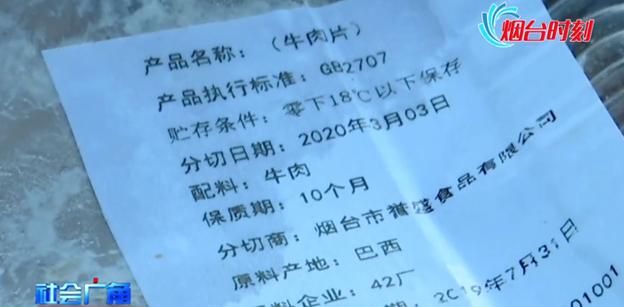 烟台时刻
产品名称: (牛肉片)
产品执行标准: GB2707
贮存条件: 零下18℃以下保存
分切日期: 2020年3月03日
配料: 牛肉
保质期: 10个月
分切商: 烟台市誉盛食品有限公司
原料产地: 巴西
料企业: 42厂
期: 2019年7月31日
01001
社会广角